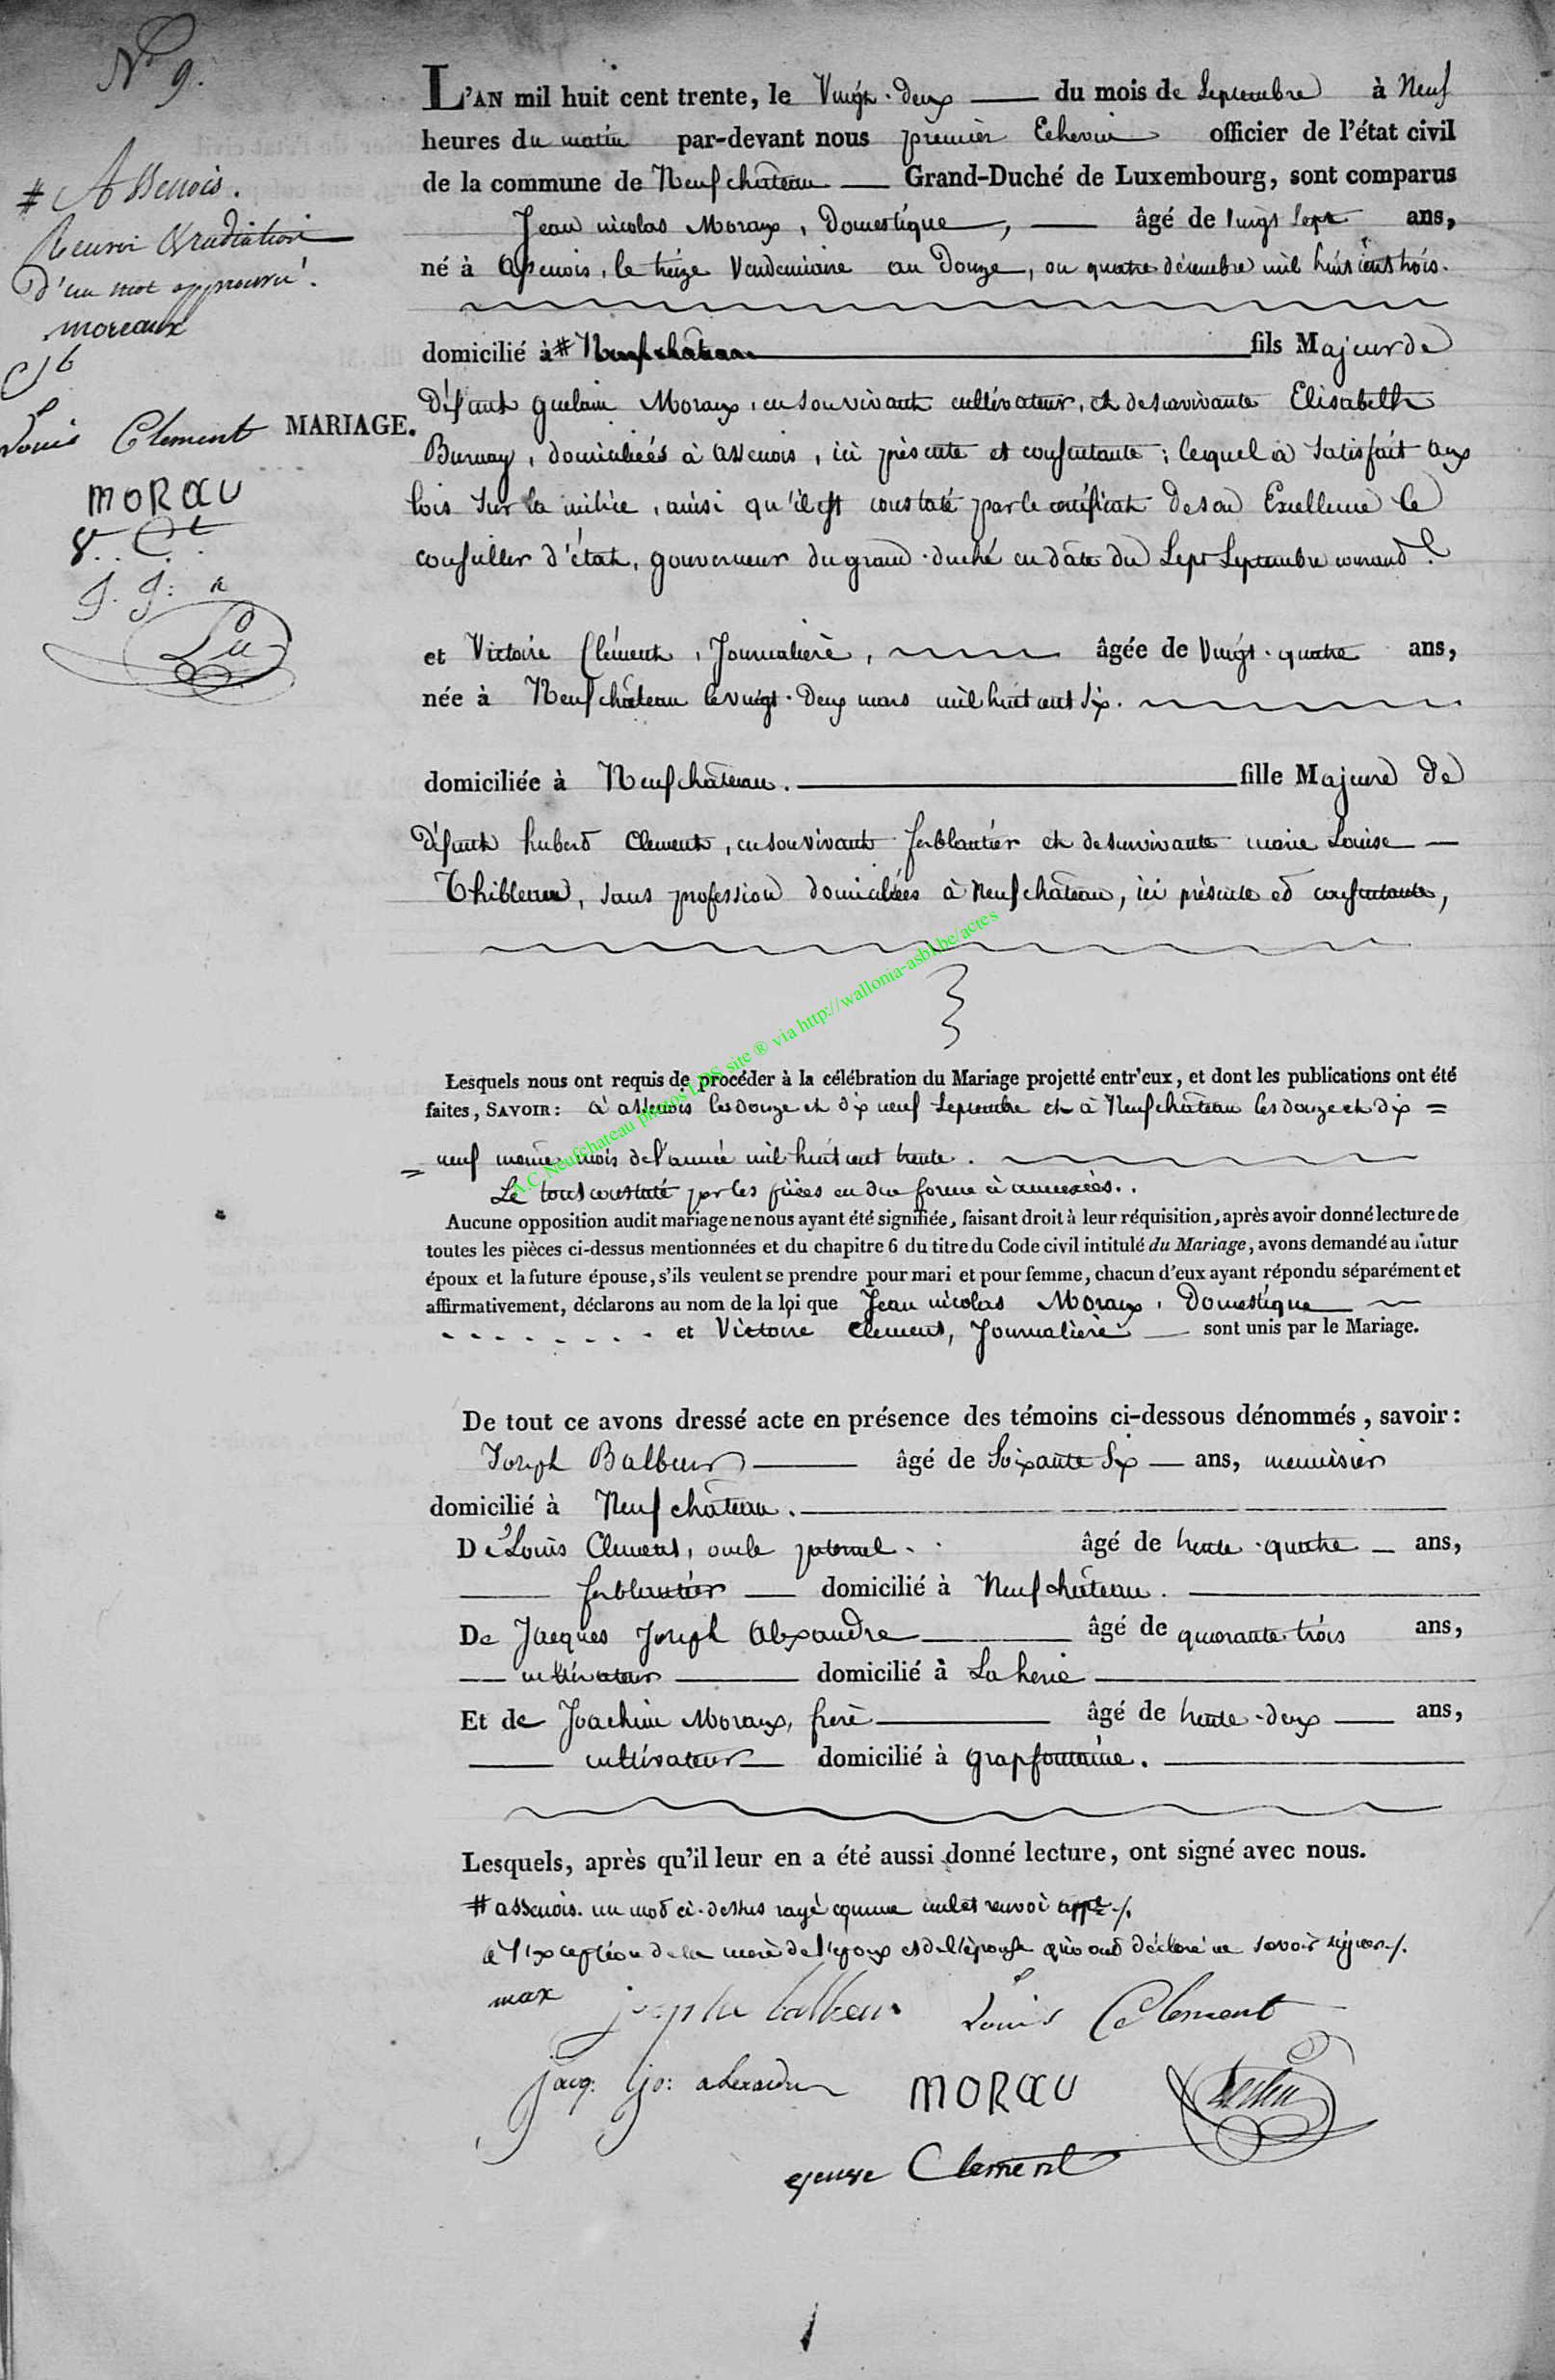 No 9.
L'AN mil huit cent trente, le Vingt-deux du mois de Septembre à Neuf
heures du matin par-devant nous premier Echevin officier de l'état civil
de la commune de Neufchâteau Grand-Duché de Luxembourg, sont comparus
Jean nicolas Moraux, Domestique, âgé de vingt sept ans,
né à Assenois, le treize Vendemiaire an Douze, ou quatre décembre mil huit cent trois.
domicilié à # Neufchateau fils Majeur de
Défunt guelain Moraux, en son vivant cultivateur, et de survivante Elisabeth
Burnay, domiciliées à assenois, ici présente et consentante; lequel a satisfait aux
lois sur la milice, ainsi qu'il est constaté par le certificat de son Excellence le
conseiller d'état, gouverneur du grand-duché en date du Sept Septembre courand.
# Assenois.
Renvoi & radiation
d'un mot approuvé.
moreaux
Louis Clément
MARIAGE.
MORAU
J. J: a
et Victoire Clément, Journalière, âgée de Vingt-quatre ans,
née à Neufchâteau le vingt-Deux mars mil huit cent six.
domiciliée à Neufchâteau. fille Majeure de
défunt huberd Clement, en son vivant ferblantier et de survivante marie Louise
Thibleau, sans profession domiciliées à Neufchâteau, ici présente ed consentante,
A.C. Neufchateau photos LDS site ® via http://wallonia-asbl.be/actes
Lesquels nous ont requis de procéder à la célébration du Mariage projetté entr'eux, et dont les publications ont été
faites, SAVOIR: à assenois les douze et dix neuf Septembre et à Neufchâteau les douze et dix =
= neuf même mois de l'année mil huit cent trente.
Le tout constaté par les pièces en due forme ci annexées.
Aucune opposition audit mariage ne nous ayant été signifiée, faisant droit à leur réquisition, après avoir donné lecture de
toutes les pièces ci-dessus mentionnées et du chapitre 6 du titre du Code civil intitulé du Mariage, avons demandé au futur
époux et la future épouse, s'ils veulent se prendre pour mari et pour femme, chacun d'eux ayant répondu séparément et
affirmativement, déclarons au nom de la loi que Jean nicolas Moraux, Domestique
et Victoire Clement, Journalière sont unis par le Mariage.
De tout ce avons dressé acte en présence des témoins ci-dessous dénommés, savoir:
Joseph Balbeur âgé de Soixante Six ans, menuisier
domicilié à Neufchâteau.
De Louis Clement, oncle paternel. âgé de trente-quatre ans,
ferblantier domicilié à Neufchâteau.
De Jacques Joseph Alexandre âgé de quarante trois ans,
cultivateur domicilié à Laherie
Et de Joachim Moraux, frère âgé de trente-deux ans,
cultivateur domicilié à Grapfontaine.
Lesquels, après qu'il leur en a été aussi donné lecture, ont signé avec nous.
# assenois. un mod ci-dessus rayé comme nul et renvoi app.
à l'exception de la mère de l'époux et de l'épouse qui ont déclaré ne savoir signer.
josephe balbeur Louis Clement
Jacq: Jo: alexandre MORAU
Clement